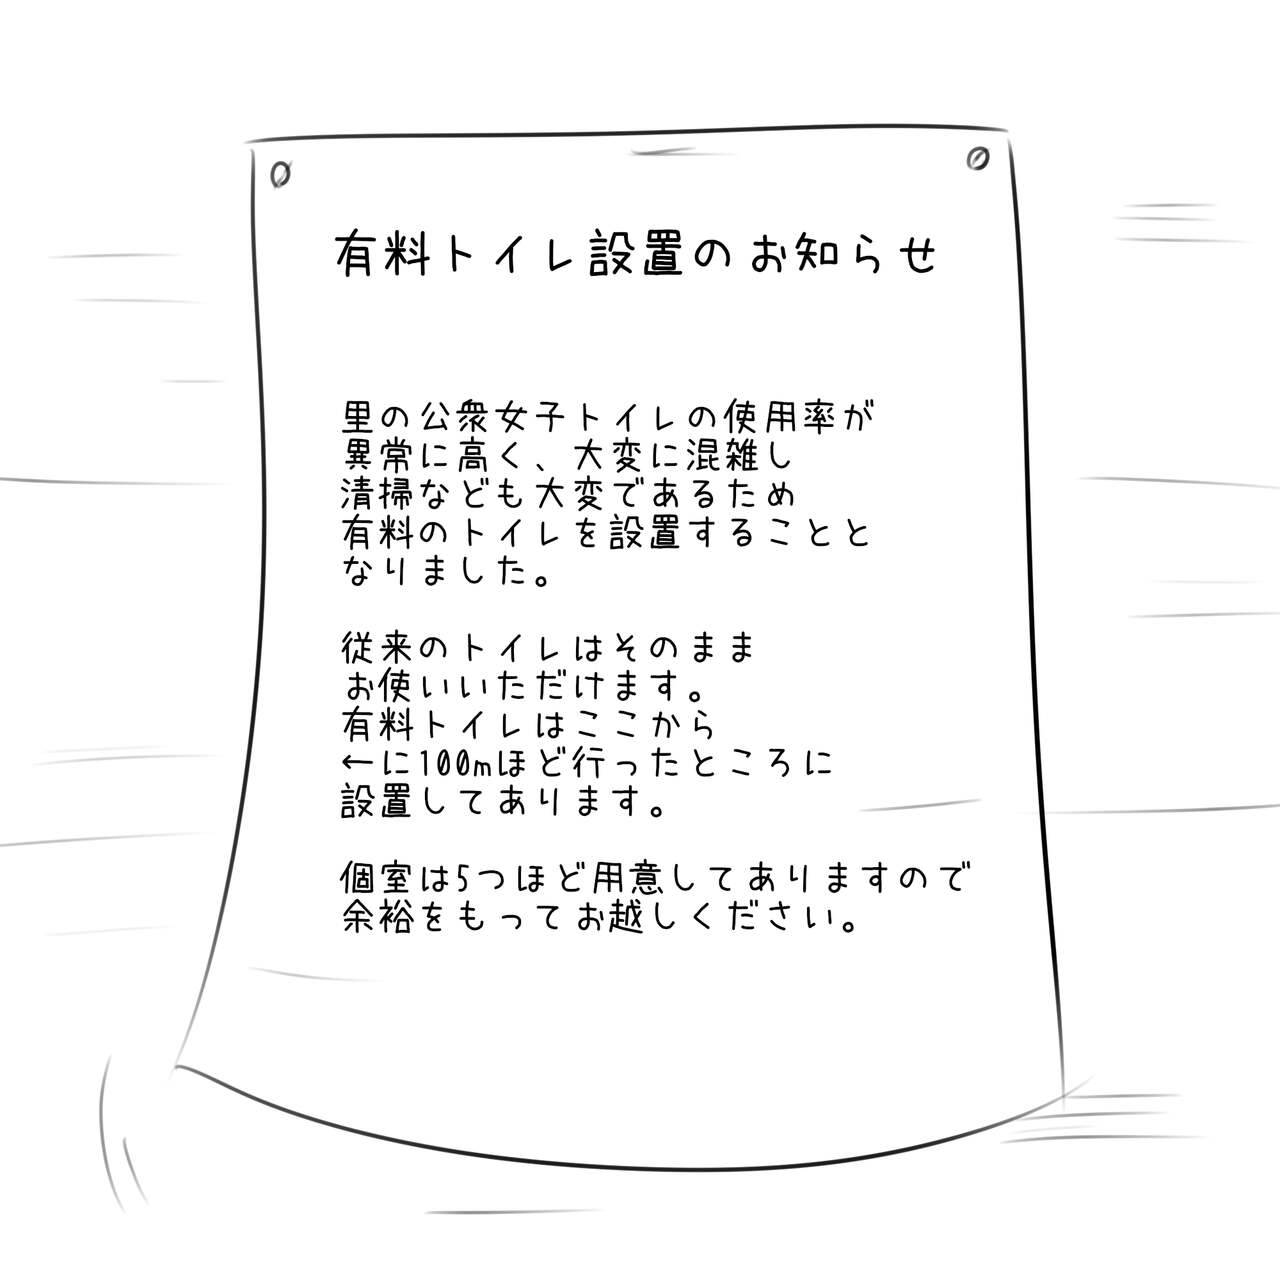 有料トイレ設置のお知らせ
里の公衆女子トイレの使用率が
異常に高く、大変に混雑し
清掃なども大変であるため
有料のトイレを設置することと
なりました。
従来のトイレはそのまま
お使いいただけます。
有料トイレはここから
←に100mほど行ったところに
設置してあります。
個室は5つほど用意してありますので
余裕をもってお越しください。